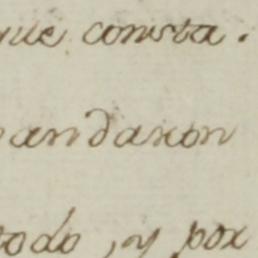 que consta.
mandaron
todo, y por